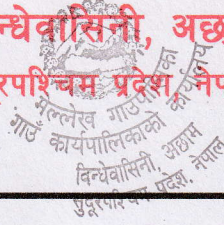 न्धेवासिनी, अछा
रपश्चिम प्रदेश, ने
मेल्लेख गाउँपालिका
गाउँ कार्यपालिकाको कार्यालय
विन्धेवासिनी, अछाम
सुदूरपश्चिम प्रदेश, नेपाल